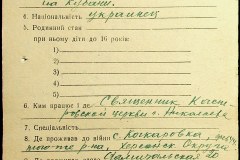 на Кубани.
4. Національність украинец
5. Родинний стан
при ньому діти до 16 років:
1)
2)
3)
4)
5)
6. Ким працює і де Священник
церкви г. Николаева
7. Спеціальність
8. Де проживав до війни с. Качкаровка
р-на, Херсонск. Округа